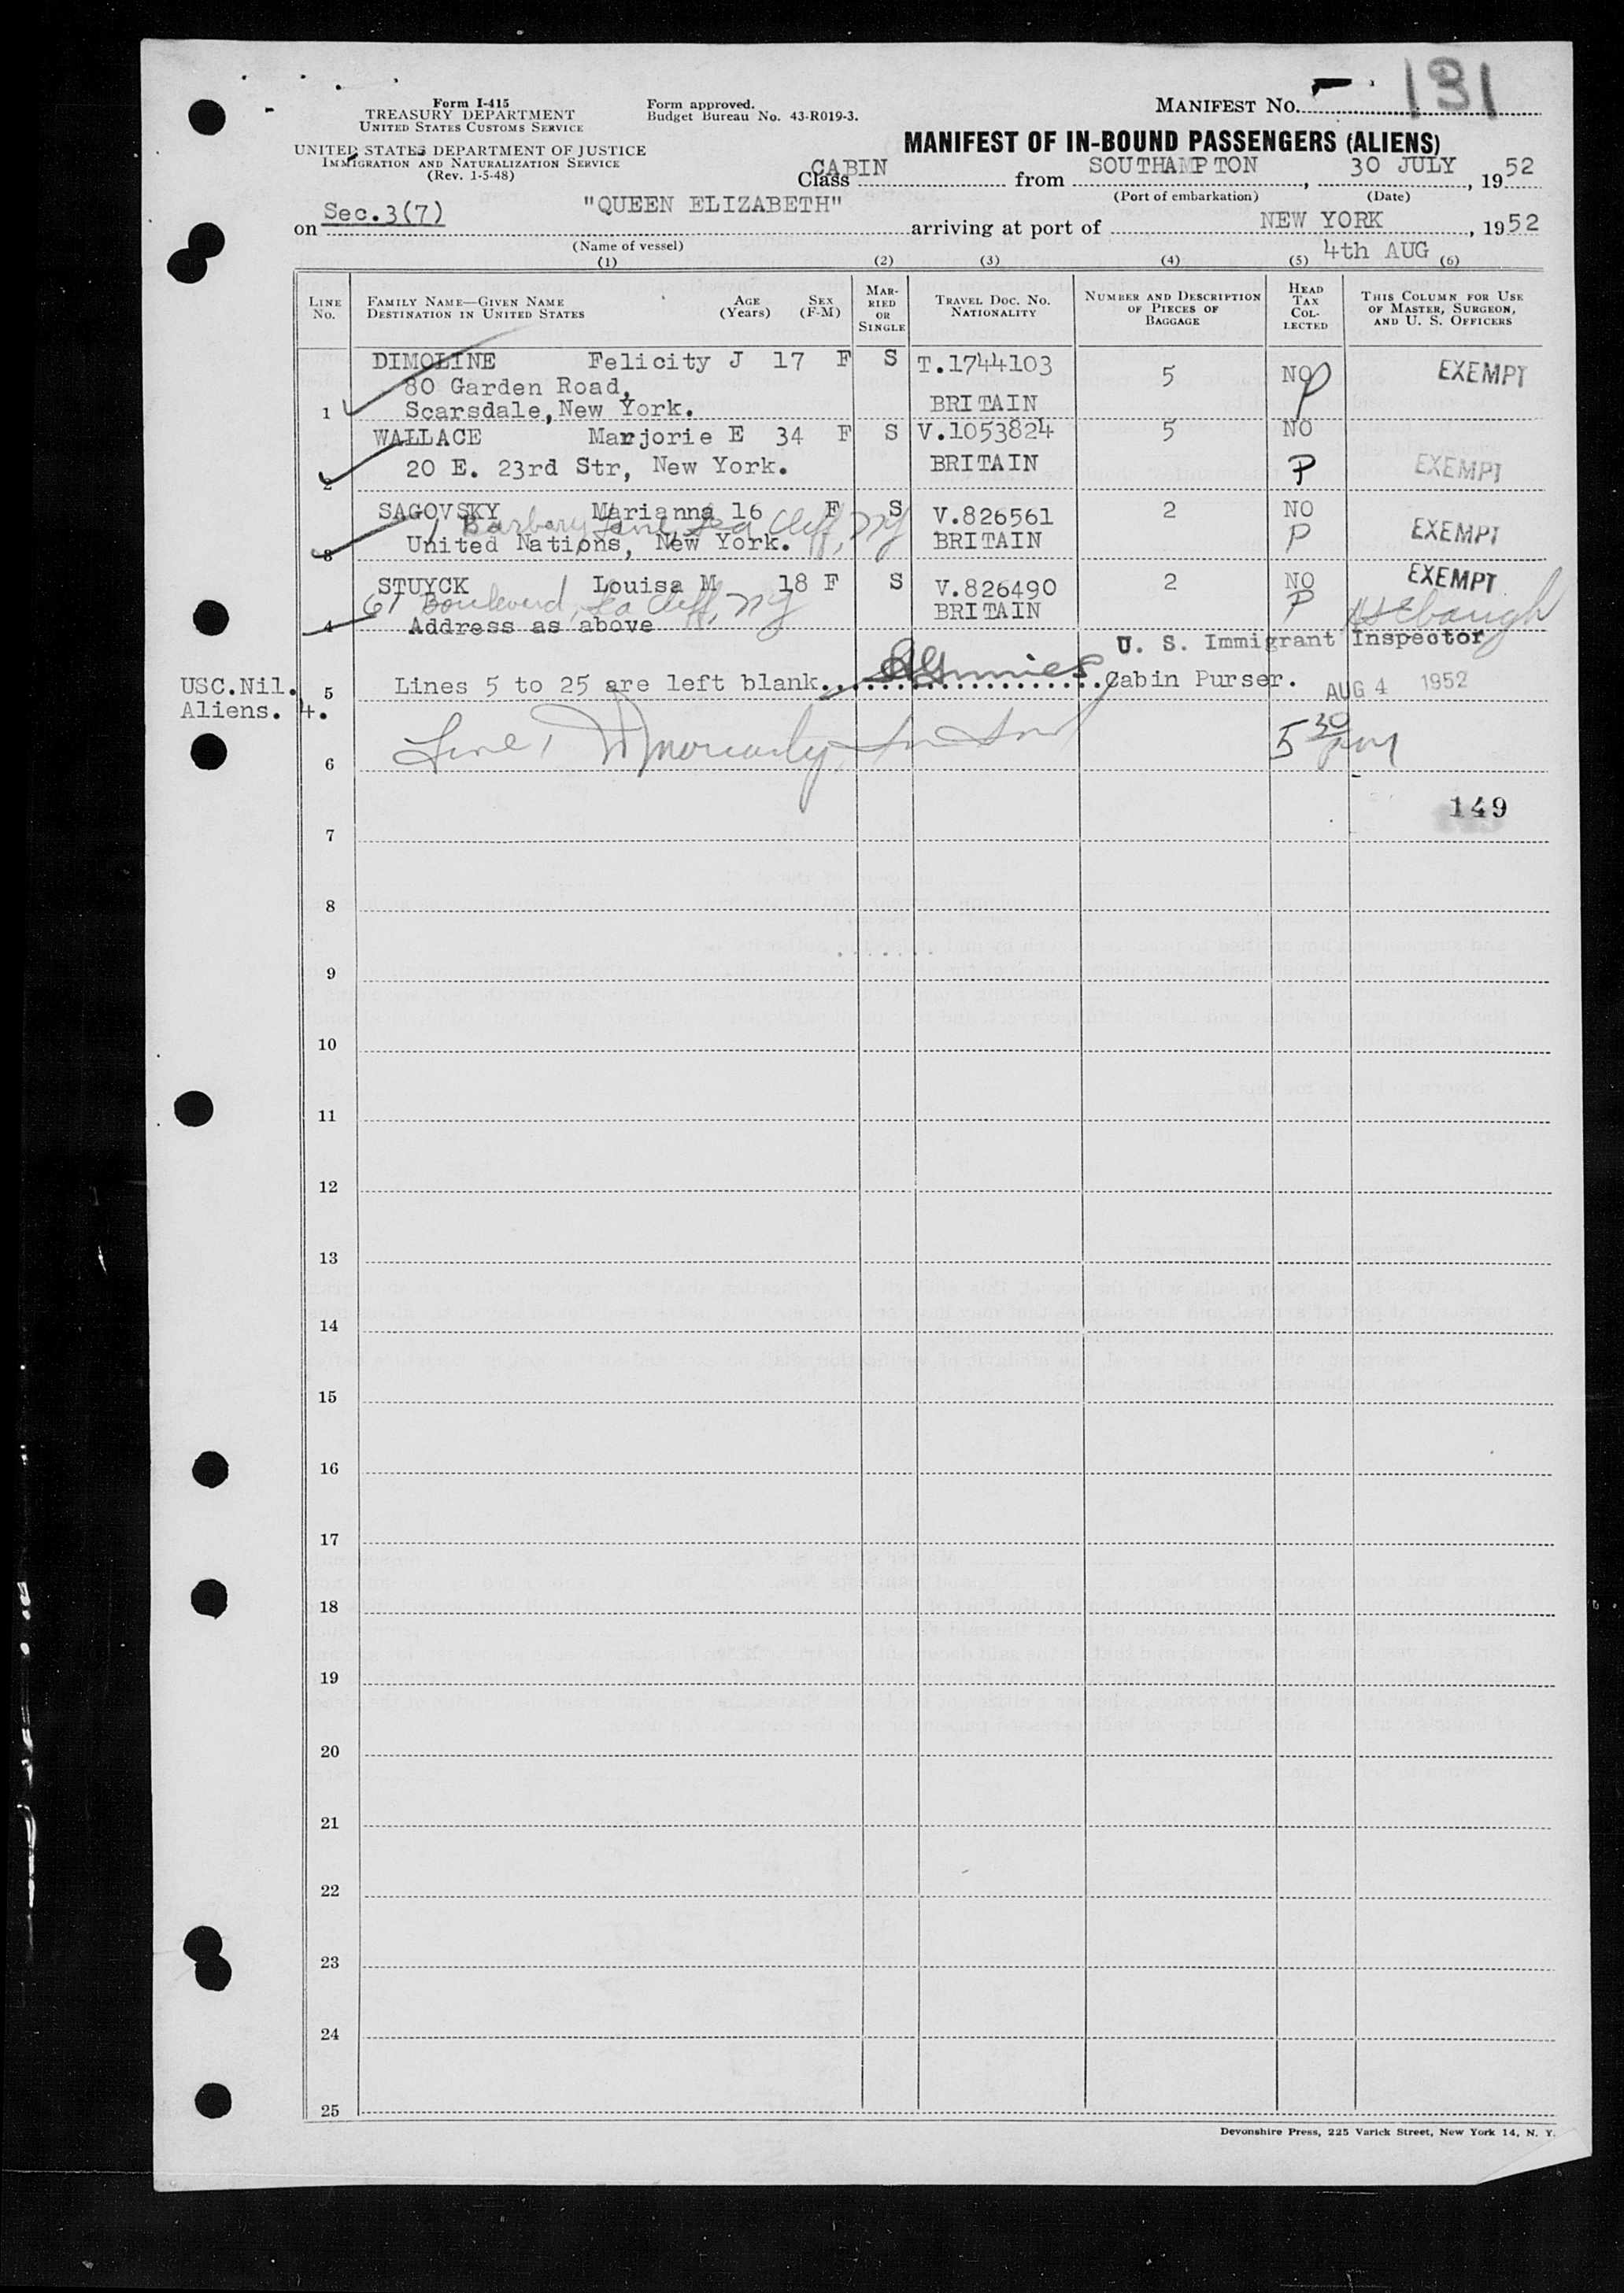 Form I-415
TREASURY DEPARTMENT
UNITED STATES CUSTOMS SERVICE
UNITED STATES DEPARTMENT OF JUSTICE
IMMIGRATION AND NATURALIZATION SERVICE
(Rev. 1-5-48)
Form approved.
Budget Bureau No. 43-R019-3.
MANIFEST NO. 131
MANIFEST OF IN-BOUND PASSENGERS (ALIENS)
Class CABIN from SOUTHAMPTON, 30 JULY, 1952
(Port of embarkation) (Date)
on Sec.3(7) "QUEEN ELIZABETH" arriving at port of NEW YORK, 1952
(Name of vessel) 4th AUG
(1) (2) (3) (4) (5) (6)
LINE NO.
FAMILY NAME—GIVEN NAME AGE SEX
DESTINATION IN UNITED STATES (Years) (F-M)
MARRIED OR SINGLE
TRAVEL DOC. NO. NATIONALITY
NUMBER AND DESCRIPTION OF PIECES OF BAGGAGE
HEAD TAX COLLECTED
THIS COLUMN FOR USE OF MASTER, SURGEON, AND U. S. OFFICERS
DIMOLINE Felicity J 17 F S T.1744103 5 NO P EXEMPT
80 Garden Road,
1 Scarsdale, New York. BRITAIN
WALLACE Marjorie E 34 F S V.1053824 5 NO
20 E. 23rd Str, New York. BRITAIN P EXEMPT
2
SAGOVSKY Marianna 16 F S V.826561 2 NO
1 Barbary Lane, Sea Cliff, NY
3 United Nations, New York. BRITAIN P EXEMPT
STUYCK Louisa M 18 F S V.826490 2 NO EXEMPT
61 Boulevard, Sea Cliff, NY BRITAIN P
4 Address as above
U. S. Immigrant Inspector
USC.Nil. 5 Lines 5 to 25 are left blank. Cabin Purser. AUG 4 1952
Aliens. 4.
6 Line 1 5 30 pm
149
7
8
9
10
11
12
13
14
15
16
17
18
19
20
21
22
23
24
25
Devonshire Press, 225 Varick Street, New York 14, N. Y.